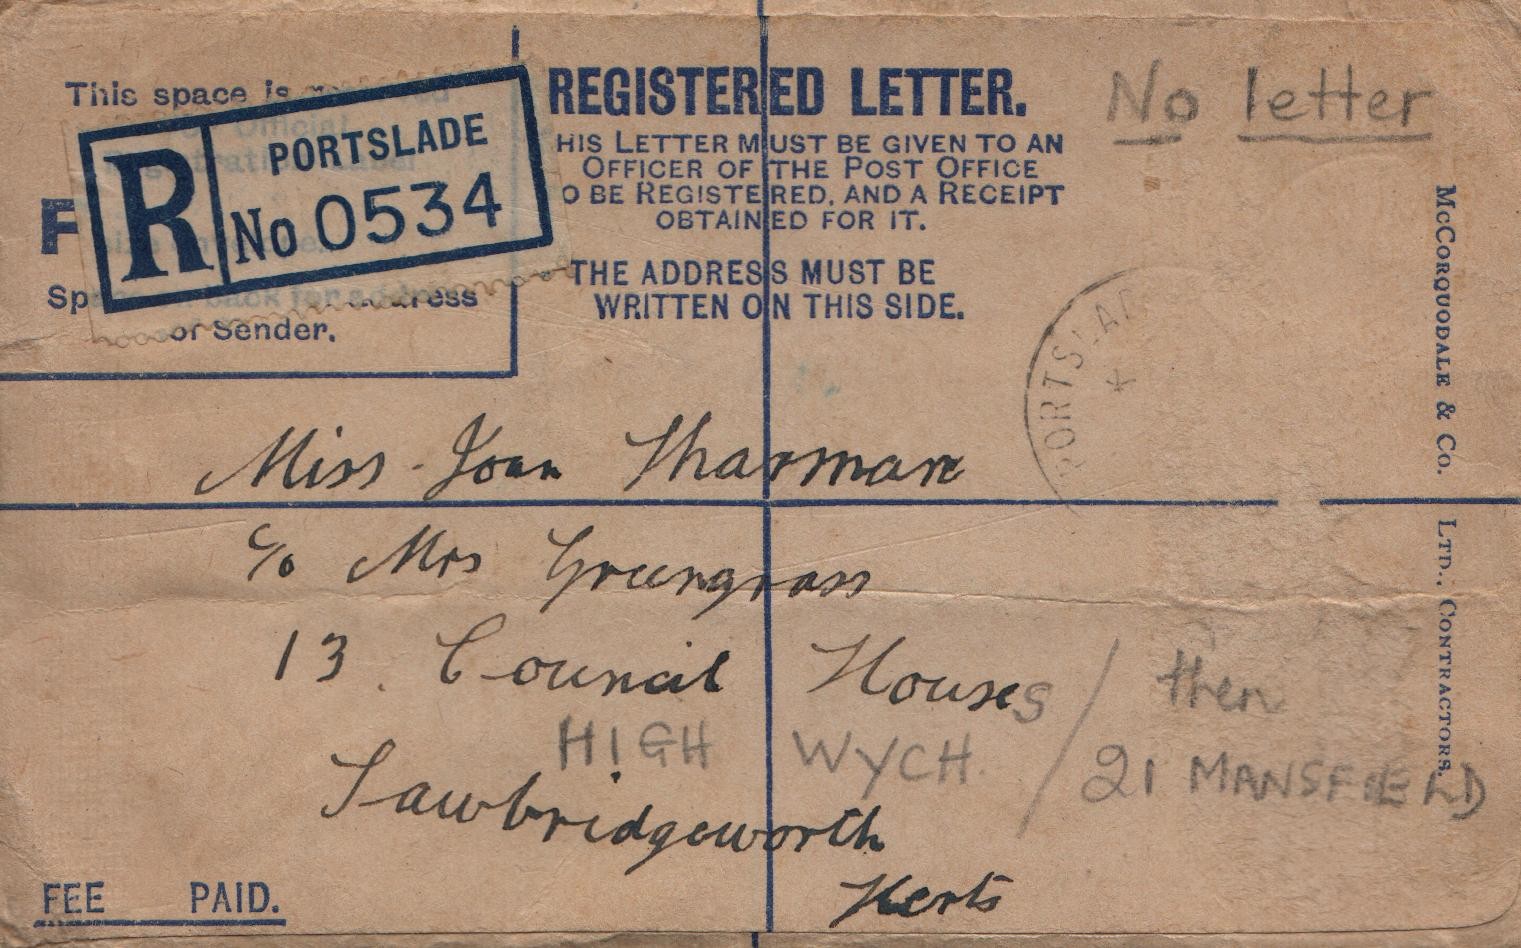 This space is
REGISTERED LETTER.
No letter
R PORTSLADE
No 0534
HIS LETTER MUST BE GIVEN TO AN
OFFICER OF THE POST OFFICE
O BE REGISTERED, AND A RECEIPT
OBTAINED FOR IT.
F
Sp back for address
of Sender.
THE ADDRESS MUST BE
WRITTEN ON THIS SIDE.
PORTSLAD
McCORQUODALE & Co. LTD., CONTRACTORS.
Miss Joan Tharmare
c/o Mrs Greengrass
13. Council Houses / then
HIGH WYCH. / 21 MANSFIELD
Sawbridgeworth
Herts
FEE PAID.